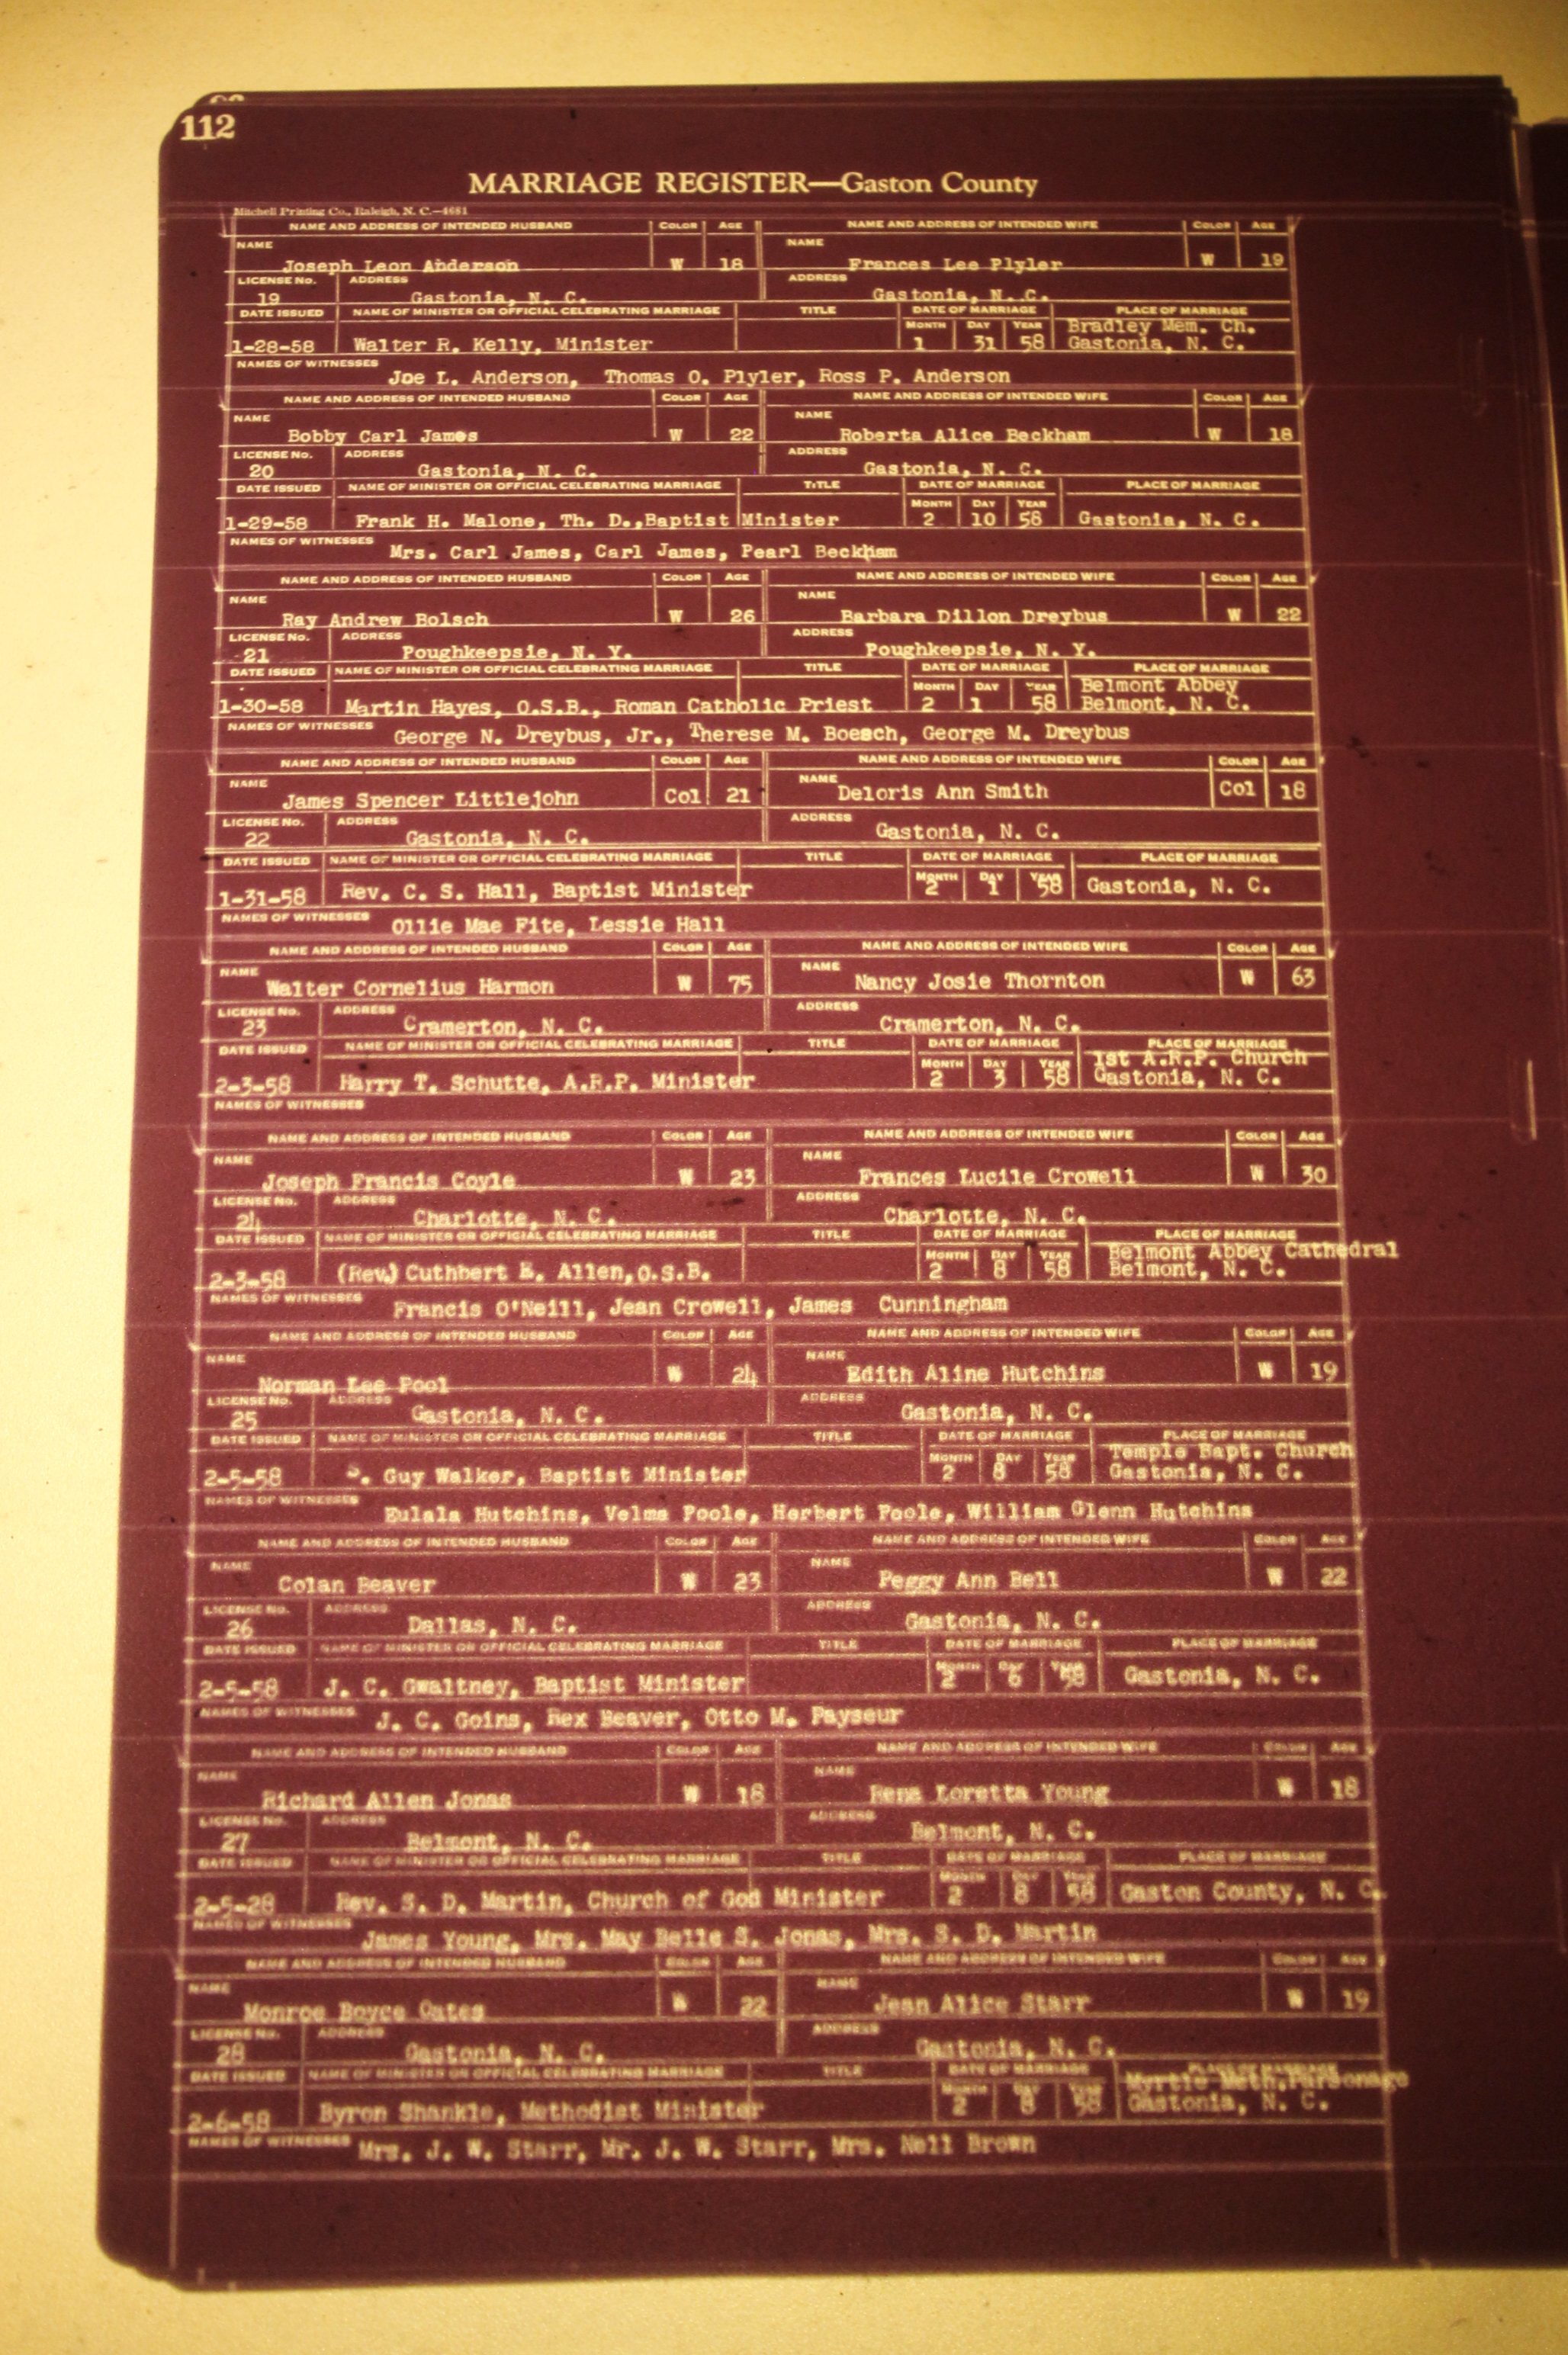 112
MARRIAGE REGISTER—Gaston County
Mitchell Printing Co., Raleigh, N. C.—4681
NAME AND ADDRESS OF INTENDED HUSBAND COLOR AGE NAME AND ADDRESS OF INTENDED WIFE COLOR AGE
NAME Joseph Leon Anderson W 18 NAME Frances Lee Plyler W 19
LICENSE No. 19 ADDRESS Gastonia, N. C. ADDRESS Gastonia, N. C.
DATE ISSUED NAME OF MINISTER OR OFFICIAL CELEBRATING MARRIAGE TITLE DATE OF MARRIAGE PLACE OF MARRIAGE
MONTH DAY YEAR Bradley Mem. Ch.
1-28-58 Walter R. Kelly, Minister 1 31 58 Gastonia, N. C.
NAMES OF WITNESSES Joe L. Anderson, Thomas O. Plyler, Ross P. Anderson
NAME AND ADDRESS OF INTENDED HUSBAND COLOR AGE NAME AND ADDRESS OF INTENDED WIFE COLOR AGE
NAME Bobby Carl James W 22 NAME Roberta Alice Beckham W 18
LICENSE No. 20 ADDRESS Gastonia, N. C. ADDRESS Gastonia, N. C.
DATE ISSUED NAME OF MINISTER OR OFFICIAL CELEBRATING MARRIAGE TITLE DATE OF MARRIAGE PLACE OF MARRIAGE
MONTH DAY YEAR
1-29-58 Frank H. Malone, Th. D.,Baptist Minister 2 10 58 Gastonia, N. C.
NAMES OF WITNESSES Mrs. Carl James, Carl James, Pearl Beckham
NAME AND ADDRESS OF INTENDED HUSBAND COLOR AGE NAME AND ADDRESS OF INTENDED WIFE COLOR AGE
NAME Ray Andrew Bolsch W 26 NAME Barbara Dillon Dreybus W 22
LICENSE No. 21 ADDRESS Poughkeepsie, N. Y. ADDRESS Poughkeepsie, N. Y.
DATE ISSUED NAME OF MINISTER OR OFFICIAL CELEBRATING MARRIAGE TITLE DATE OF MARRIAGE PLACE OF MARRIAGE
MONTH DAY YEAR Belmont Abbey
1-30-58 Martin Hayes, O.S.B., Roman Catholic Priest 2 1 58 Belmont, N. C.
NAMES OF WITNESSES George N. Dreybus, Jr., Therese M. Boesch, George M. Dreybus
NAME AND ADDRESS OF INTENDED HUSBAND COLOR AGE NAME AND ADDRESS OF INTENDED WIFE COLOR AGE
NAME James Spencer Littlejohn Col 21 NAME Deloris Ann Smith Col 18
LICENSE No. 22 ADDRESS Gastonia, N. C. ADDRESS Gastonia, N. C.
DATE ISSUED NAME OF MINISTER OR OFFICIAL CELEBRATING MARRIAGE TITLE DATE OF MARRIAGE PLACE OF MARRIAGE
MONTH DAY YEAR
1-31-58 Rev. C. S. Hall, Baptist Minister 2 1 58 Gastonia, N. C.
NAMES OF WITNESSES Ollie Mae Fite, Lessie Hall
NAME AND ADDRESS OF INTENDED HUSBAND COLOR AGE NAME AND ADDRESS OF INTENDED WIFE COLOR AGE
NAME Walter Cornelius Harmon W 75 NAME Nancy Josie Thornton W 63
LICENSE No. 23 ADDRESS Cramerton, N. C. ADDRESS Cramerton, N. C.
DATE ISSUED NAME OF MINISTER OR OFFICIAL CELEBRATING MARRIAGE TITLE DATE OF MARRIAGE PLACE OF MARRIAGE
MONTH DAY YEAR 1st A.R.P. Church
2-3-58 Harry T. Schutte, A.R.P. Minister 2 3 58 Gastonia, N. C.
NAMES OF WITNESSES
NAME AND ADDRESS OF INTENDED HUSBAND COLOR AGE NAME AND ADDRESS OF INTENDED WIFE COLOR AGE
NAME Joseph Francis Coyle W 23 NAME Frances Lucile Crowell W 30
LICENSE No. 24 ADDRESS Charlotte, N. C. ADDRESS Charlotte, N. C.
DATE ISSUED NAME OF MINISTER OR OFFICIAL CELEBRATING MARRIAGE TITLE DATE OF MARRIAGE PLACE OF MARRIAGE
MONTH DAY YEAR Belmont Abbey Cathedral
2-3-58 (Rev.) Cuthbert E. Allen,O.S.B. 2 8 58 Belmont, N. C.
NAMES OF WITNESSES Francis O'Neill, Jean Crowell, James Cunningham
NAME AND ADDRESS OF INTENDED HUSBAND COLOR AGE NAME AND ADDRESS OF INTENDED WIFE COLOR AGE
NAME Norman Lee Pool W 24 NAME Edith Aline Hutchins W 19
LICENSE No. 25 ADDRESS Gastonia, N. C. ADDRESS Gastonia, N. C.
DATE ISSUED NAME OF MINISTER OR OFFICIAL CELEBRATING MARRIAGE TITLE DATE OF MARRIAGE PLACE OF MARRIAGE
MONTH DAY YEAR Temple Bapt. Church
2-5-58 S. Guy Walker, Baptist Minister 2 8 58 Gastonia, N. C.
NAMES OF WITNESSES Eulala Hutchins, Velma Poole, Herbert Poole, William Glenn Hutchins
NAME AND ADDRESS OF INTENDED HUSBAND COLOR AGE NAME AND ADDRESS OF INTENDED WIFE COLOR AGE
NAME Colan Beaver W 23 NAME Peggy Ann Bell W 22
LICENSE No. 26 ADDRESS Dallas, N. C. ADDRESS Gastonia, N. C.
DATE ISSUED NAME OF MINISTER OR OFFICIAL CELEBRATING MARRIAGE TITLE DATE OF MARRIAGE PLACE OF MARRIAGE
MONTH DAY YEAR
2-5-58 J. C. Gwaltney, Baptist Minister 2 6 58 Gastonia, N. C.
NAMES OF WITNESSES J. C. Goins, Rex Beaver, Otto M. Payseur
NAME AND ADDRESS OF INTENDED HUSBAND COLOR AGE NAME AND ADDRESS OF INTENDED WIFE COLOR AGE
NAME Richard Allen Jonas W 18 NAME Rena Loretta Young W 18
LICENSE No. 27 ADDRESS Belmont, N. C. ADDRESS Belmont, N. C.
DATE ISSUED NAME OF MINISTER OR OFFICIAL CELEBRATING MARRIAGE TITLE DATE OF MARRIAGE PLACE OF MARRIAGE
MONTH DAY YEAR
2-5-28 Rev. S. D. Martin, Church of God Minister 2 8 58 Gaston County, N. C.
NAMES OF WITNESSES James Young, Mrs. May Belle S. Jonas, Mrs. S. D. Martin
NAME AND ADDRESS OF INTENDED HUSBAND COLOR AGE NAME AND ADDRESS OF INTENDED WIFE COLOR AGE
NAME Monroe Boyce Oates W 22 NAME Jean Alice Starr W 19
LICENSE No. 28 ADDRESS Gastonia, N. C. ADDRESS Gastonia, N. C.
DATE ISSUED NAME OF MINISTER OR OFFICIAL CELEBRATING MARRIAGE TITLE DATE OF MARRIAGE PLACE OF MARRIAGE
MONTH DAY YEAR Myrtle Meth.Parsonage
2-6-58 Byron Shankle, Methodist Minister 2 8 58 Gastonia, N. C.
NAMES OF WITNESSES Mrs. J. W. Starr, Mr. J. W. Starr, Mrs. Nell Brown